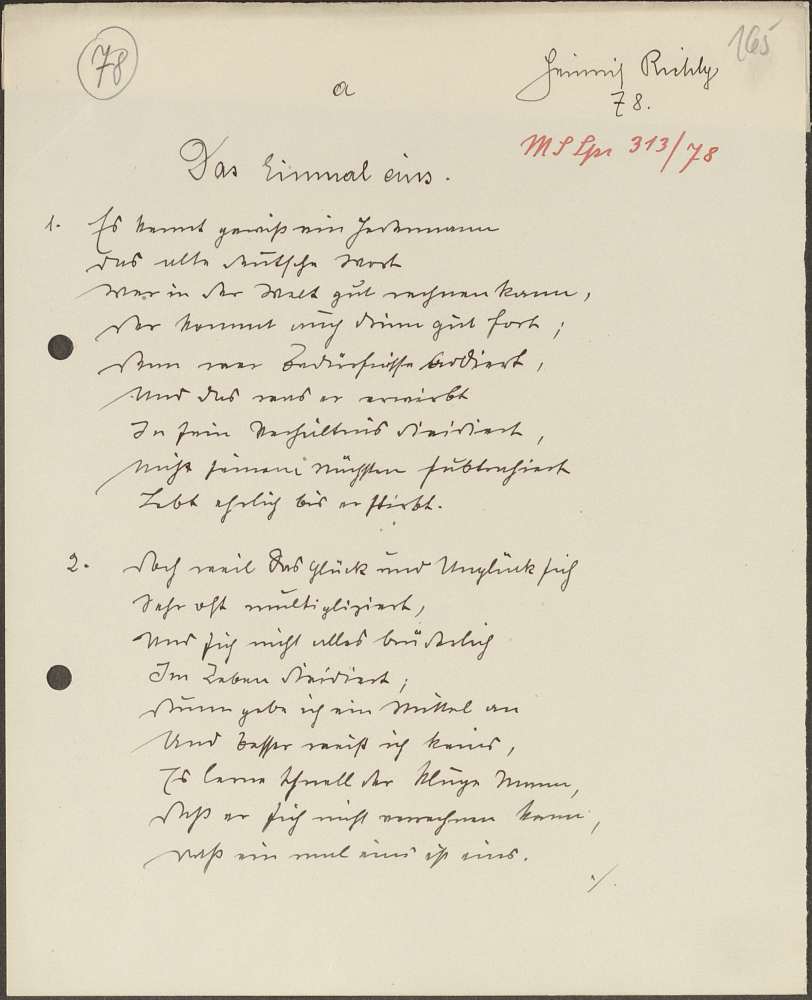 78
165
a
Heinrich Richly
78.
MS Spr 313/78
Das Einmal eins.
1. Es kennt gewiß ein Jedermann
das alte deutsche Wort
Wer in der Welt gut rechnen kann,
der kommt auch drinn gut fort;
denn wer Bedürfnisse addiert,
Und das was er erwirbt
In sein Verhältnis dividiert,
Nicht seinem Nächsten subtrahiert
Lebt ehrlich bis er stirbt.
2. doch weil das Glück und Unglück sich
Sehr oft multipliziert,
Und sich nicht alles brüderlich
Im Leben dividiert;
drum gebe ich ein Mittel an
Und besser weiß ich keins,
Es lerne schnell der kluge Mann,
daß er sich nicht verrechnen kann,
daß ein mal eins ist eins.
./.